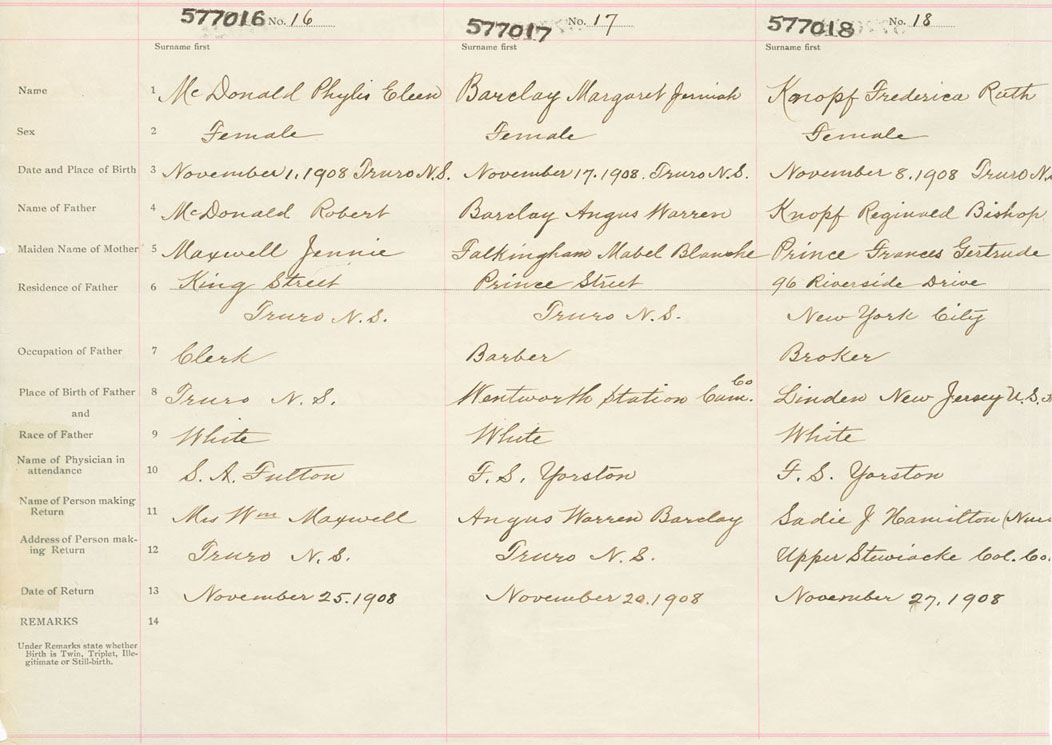 577016 No. 16 577017 No. 17 577018 No. 18
Surname first Surname first Surname first
Name 1 McDonald Phylis Eleen Barclay Margaret Knopf Frederica Ruth
Sex 2 Female Female Female
Date and Place of Birth 3 November 1, 1908 Truro N.S. November 17, 1908. Truro N.S. November 8, 1908 Truro N.
Name of Father 4 McDonald Robert Barclay Angus Warren Knopf Reginald Bishop
Maiden Name of Mother 5 Maxwell Jennie Falkingham Mabel Blanche Prince Frances Gertrude
Residence of Father 6 King Street Prince Street 96 Riverside Drive
Truro N.S. Truro N.S. New York City
Occupation of Father 7 Clerk Barber Broker
Place of Birth of Father 8 Truro N.S. Wentworth Station Cum. Co Linden New Jersey U.S.
and
Race of Father 9 White White White
Name of Physician in
attendance 10 S. A. Fulton F. S. Yorston F. S. Yorston
Name of Person making
Return 11 Mrs Wm Maxwell Angus Warren Barclay Sadie J Hamilton (Nurs
Address of Person mak-
ing Return 12 Truro N.S. Truro N.S. Upper Stewiacke Col. Co.
Date of Return 13 November 25. 1908 November 20. 1908 November 27, 1908
REMARKS 14
Under Remarks state whether
Birth is Twin, Triplet, Ille-
gitimate or Still-birth.